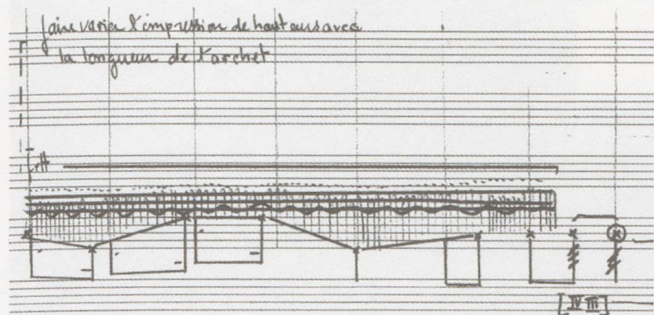 faire varier l'impression de hauteurs avec
la longueur de l'archet
IV III